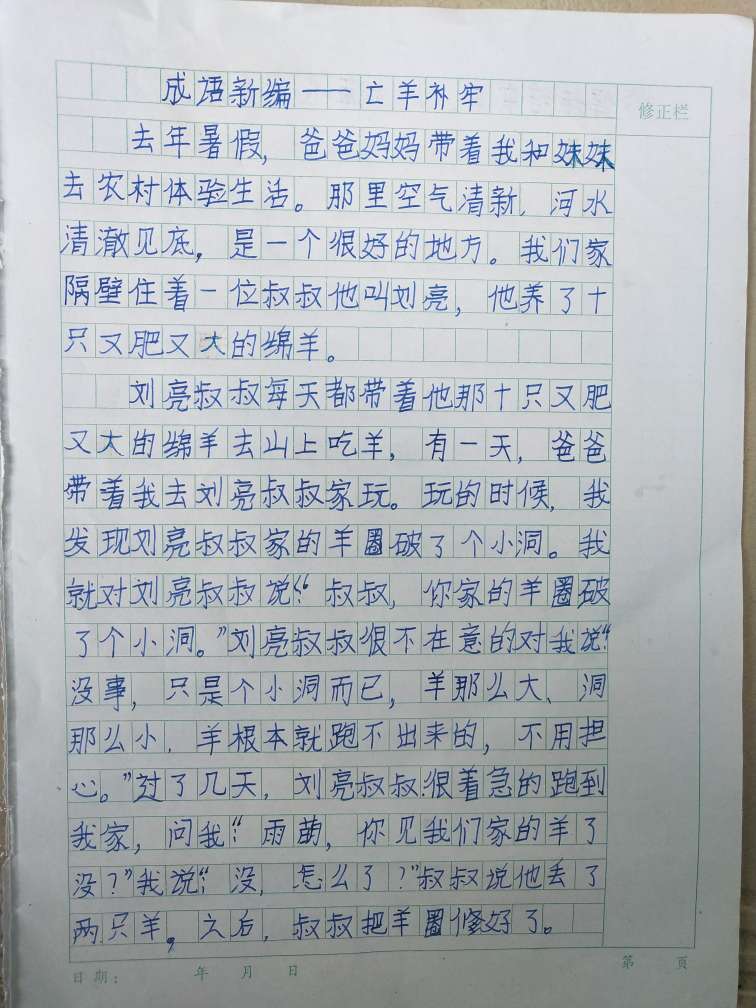 成语新编——亡羊补牢
修正栏
去年暑假，爸爸妈妈带着我和妹妹
去农村体验生活。那里空气清新，河水
清澈见底，是一个很好的地方。我们家
隔壁住着一位叔叔他叫刘亮，他养了十
只又肥又大的绵羊。
刘亮叔叔每天都带着他那十只又肥
又大的绵羊去山上吃羊，有一天，爸爸
带着我去刘亮叔叔家玩。玩的时候，我
发现刘亮叔叔家的羊圈破了个小洞。我
就对刘亮叔叔说：“叔叔，你家的羊圈破
了个小洞。”刘亮叔叔很不在意的对我说：“
没事，只是个小洞而已，羊那么大、洞
那么小，羊根本就跑不出来的，不用担
心。”过了几天，刘亮叔叔很着急的跑到
我家，问我：“雨萌，你见我们家的羊了
没？”我说：“没，怎么了？”叔叔说他丢了
两只羊。之后，叔叔把羊圈修好了。
日期： 年 月 日 第 页